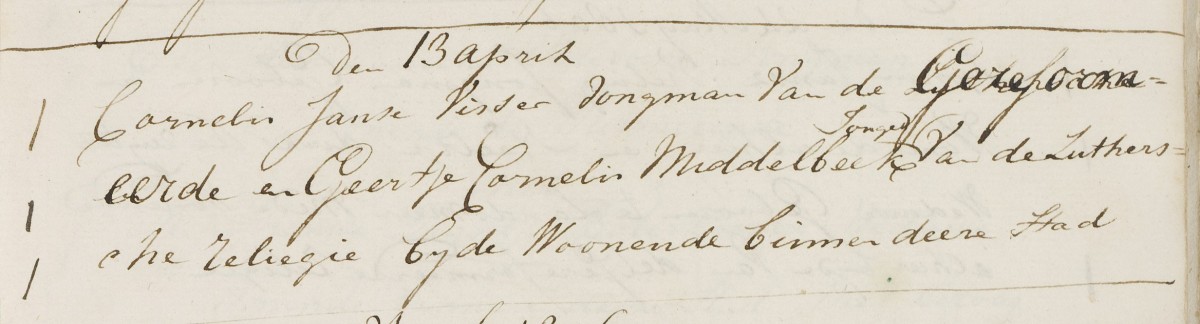 Den 13 april
Cornelis Janse Visser Jongman Van de Gereform=
eerde en Geertje Cornelis Middelbeek Jonged Van de Luthers=
che Religie byde Woonende binnen deese Stad